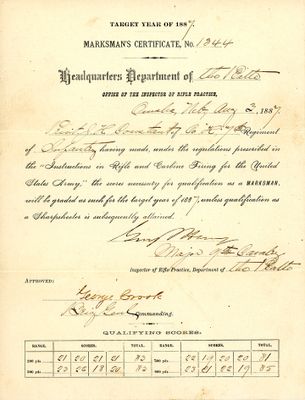 TARGET YEAR OF 1887.
MARKSMAN'S CERTIFICATE, No. 1344
Headquarters Department of the Platte
OFFICE OF THE INSPECTOR OF RIFLE PRACTICE,
Omaha, Neb, Aug 2, 1887.
of Co. 7th Regiment
of Infantry having made, under the regulations prescribed in
the "Instructions in Rifle and Carbine Firing for the United
States Army," the scores necessary for qualification as a MARKSMAN,
will be graded as such for the target year of 1887, unless qualification as
a Sharpshooter is subsequently attained.
Guy V Henry
Major 9th Cavalry
Inspector of Rifle Practice, Department of the Platte
APPROVED:
George Crook
Brig Genl Commanding.
QUALIFYING SCORES.
RANGE. SCORES. TOTAL. RANGE. SCORES. TOTAL.
200 yds. 21 20 21 21 83 yds. 22 19 20 20 81
300 yds. 23 22 18 20 83 600 yds. 23 21 22 19 85